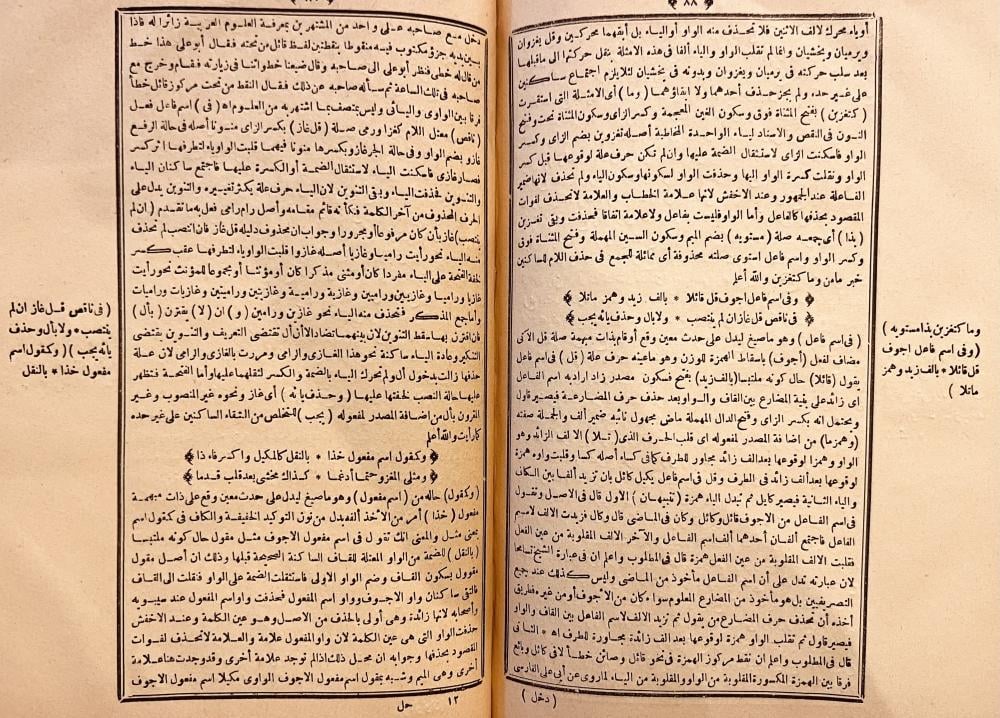 ﴿ ٨٨ ﴾
أو ياء محرك لالف الاثنين فلا تحذف منه الواو أو الياء بل أبقهما محركين وقل يغزوان
ويرميان ويخشيان وانما لم تقلب الواو والياء ألفا فى هذه الامثلة بنقل حركتهما الى ما قبلها
بعد سلب حركته فى يرميان ويغزوان وبدونه فى يخشيان لئلا يلزم اجتماع ساكنين
على غير حده ولم يجز حذف أحدهما ولا ابقاؤهما ( وما ) أى الامثلة التى استقرت
( كتغزين ) بفتح المثناة فوق وسكون الغين المعجمة وكسر الزاى وسكون المثناة تحت وفتح
النون فى النقص والاسناد لياء الواحدة المخاطبة أصله تغزوين بضم الزاى وكسر
الواو فاسكنت الزاى لاستثقال الضمة عليها وان لم تكن حرف علة لوقوعها قبل كسر
الواو ونقلت كسرة الواو اليها وحذفت الواو لسكونها وسكون الياء ولم تحذف لانها ضمير
الفاعلة عند الجمهور وعند الاخفش لانها علامة الخطاب والعلامة لا تحذف لفوات
المقصود بحذفها كالفاعل وأما الواو فليست بفاعل ولا علامة اتفاقا فحذفت وبقى تغزين
( بذا ) أى جمعه صلة ( مستويه ) بضم الميم وسكون السين المهملة وفتح المثناة فوق
وكسر الواو واسم فاعل استوى صلته محذوفة أى مماثلة للجمع فى حذف اللام للساكنين
خبر ما من وما كتغزين والله أعلم
﴿ وفى اسم فاعل اجوف قل قائلا * بالف زيد وهمز ماتلا ﴾
﴿ فى ناقص قل غاز ان لم ينتصب * ولا بال وحذف يائه يجب ﴾
( فى اسم فاعل ) وهو ما صيغ ليدل على حدث معين وقع أو قام بذات مبهمة صلة قل الآتى
مضاف لفعل ( أجوف ) باسقاط الهمزة للوزن وهو ما عينه حرف علة ( قل ) فى اسم فاعل
يقول ( قائلا ) حال كونه ملتبسا ( بالف زيد ) بفتح فسكون مصدر زاد اراد به اسم الفاعل
اى زائد على بنية المضارع بين القاف والواو بعد حذف حرف المضارعة فيصير قاول
ويحتمل انه بكسر الزاى وفتح الدال المهملة ماض مجهول نائبه ضمير ألف والجملة صفته
( وهمز ما ) من اضافة المصدر لمفعوله اى قلب الحرف الذى ( تلا ) الالف الزائد وهو
الواو وهمزا لوقوعها بعد الف زائد مجاور للطرف كما فى كساء أصله كساو قلبت واوه همزة
لوقوعها بعد ألف زائد فى الطرف وقل فى اسم فاعل يكيل كائل بان تزيد ألفا بين الكاف
والياء الثانية فيصير كايل ثم تبدل الياء همزة ( تنبيهان ) الاول قال فى الاصل وتقول
فى اسم الفاعل من الاجوف قائل وكائل وكان فى الماضى قال وكال فزيدت الالف لاسم
الفاعل فاجتمع ألفان أحدهما ألف اسم الفاعل والآخر الالف المقلوبة من عين الفعل
فقلبت الالف المقلوبة من عين الفعل همزة قال فى المطلوب واعلم ان فى عبارة الشيخ تسامحا
لان عبارته تدل على أن اسم الفاعل مأخوذ من الماضى وليس كذلك عند جميع
التصريفيين بل هو مأخوذ من المضارع المعلوم سواء كان من الاجوف أو من غيره فطريق
أخذه أن تحذف حرف المضارع من يقول ثم تزيد الالف لاسم الفاعل بين القاف والواو
فيصير قاول ثم تقلب الواو همزة لوقوعها بعد ألف زائدة مجاورة للطرف اه * الثانى
قال فى المطلوب واعلم ان نقط مركوز الهمزة فى نحو قائل وصائن خطأ لا فى كايل وبايع
فرقا بين الهمزة المكسورة المقلوبة من الواو والمقلوبة من الياء لما روى عن أبى على الفارسى
( دخل )
وما كتغزين بذا مستويه )
( وفى اسم فاعل اجوف
قل قائلا * بالف زيد وهمز
ماتلا )
دخل مع صاحبه على واحد من المشتهرين بمعرفة العلوم العربية زائرا له فاذا
بين يديه جزؤ مكتوب فيه منقوطا بنقطتين لفظ قائل من تحته فقال أبو على هذا خط
من قال له خطى فنظر أبو على الى صاحبه وقال ضيعنا خطواتنا فى زيارته فقام وخرج مع
صاحبه فى تلك الساعة ثم سأله صاحبه عن ذلك فقال النقط من تحت مركوز قائل خطأ
فرقا بين الواوى واليائى وليس بمتصف بما اشتهر به من العلوم اه ( فى ) اسم فاعل فعل
( ناقص ) معتل اللام كغزا ورمى صلة ( قل غاز ) بكسر الزاى منونا أصله فى حالة الرفع
غازو بضم الواو وفى حالة الجر غازو بكسرها منونا فيهما قلبت الواو ياء لتطرفها اثر كسر
فصار غازى فاسكنت الياء لاستثقال الضمة أو الكسرة عليها فاجتمع ساكنان الياء
والتنوين فحذفت الياء وبقى التنوين لان الياء حرف علة يكثر تغييره والتنوين يدل على
الحرف المحذوف من آخر الكلمة فكأنه قائم مقامه وأصل رام رامى فعل به ما تقدم ( ان لم
ينتصب ) غاز بأن كان مرفوعا أو مجرورا وجواب ان محذوف دليله قل غاز فان انتصب لم تحذف
منه الياء نحو رأيت راميا وغازيا أصله غازوا قلبت الواو ياء لتطرفها عقب كسر
لخفة الفتحة على الياء مفردا كان أو مثنى مذكرا كان أو مؤنثا أو مجموعا للمؤنث نحو رأيت
غازيا وراميا وغازيين وراميين وغازية ورامية وغازيتين وراميتين وغازيات وراميات
وأما جمع المذكر فتحذف منه الياء نحو غازين ورامين ( و ) ان ( لا ) يقترن ( بأل )
فان اقترن بها سقط التنوين لان بينهما تضادا لأن أل تقتضى التعريف والتنوين يقتضى
التنكير وعادة الياء ساكنة نحو هذا الغازى والرامى ومررت بالغازى والرامى لان علة
حذفها زالت بدخول أل ولم تحرك الياء بالضمة والكسر لثقلهما عليها وأما الفتحة فتظهر
عليها حالة النصب لخفتها عليها ( وحذف يائه ) أى غاز ونحوه غير المنصوب وغير
المقرون بأل من اضافة المصدر لمفعوله ( يجب ) للتخلص من التقاء الساكنين على غير حده
كما رأيت والله أعلم
﴿ وكمقول اسم مفعول خذا * بالنقل كالمكيل واكسر فاء ذا ﴾
﴿ ومثلى المغزو حتما أدغما * كذاك مخشى بعد قلب قدما ﴾
( وكمقول ) حاله من ( اسم مفعول ) وهو ما صيغ ليدل على حدث معين وقع على ذات مبهمة
مفعول ( خذا ) أمر من الاخذ ألفه بدل من نون التوكيد الخفيفة والكاف فى كمقول اسم
بمعنى مثل والمعنى انك تقول فى اسم مفعول الاجوف مثل مقول حال كونه ملتبسا
( بالنقل ) للضمة من الواو المعتلة للقاف الساكنة الصحيحة قبلها وذلك ان أصل مقول
مقوول بسكون القاف وضم الواو الاولى فاستثقلت الضمة على الواو فنقلت الى القاف
فالتقى ساكنان واو الاجوف وواو اسم المفعول فحذفت واو اسم المفعول عند سيبويه
وأصحابه لانها زائدة وهى أولى بالحذف من الاصل وهو عين الكلمة وعند الاخفش
حذفت الواو التى هى عين الكلمة لان واو المفعول علامة والعلامة لا تحذف لفوات
المقصود بحذفها وجوابه ان محل ذلك اذا لم توجد علامة أخرى وقد وجدت هنا علامة
أخرى وهى الميم وشبه بمقول اسم مفعول الاجوف الواوى مكيلا اسم مفعول الاجوف
١٢ حل
( فى ناقص قل غاز ان لم
ينتصب * ولا بأل وحذف
يائه يجب ) ( وكمقول اسم
مفعول خذا * بالنقل